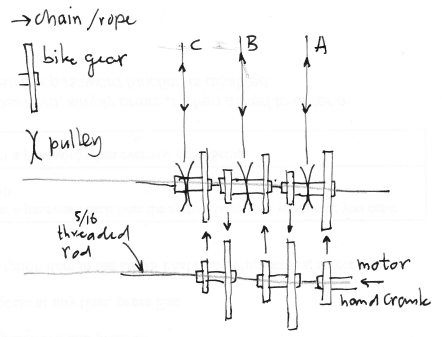 → chain / rope
bike gear
pulley
C B A
5/16
threaded
rod
motor
hand crank